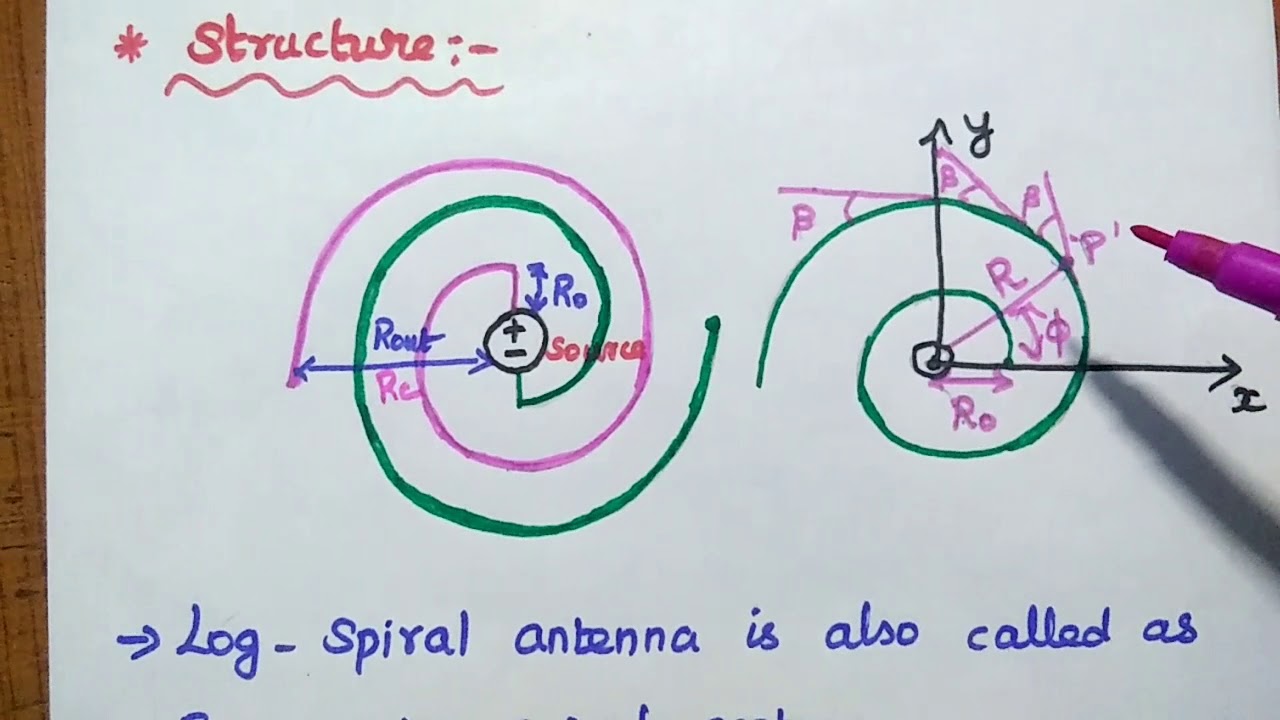 * Structure:-
y
β
β
β
P'
R
+
-
R₀
Rout
Source
Rc
ϕ
R₀
x
→ Log - Spiral antenna is also called as